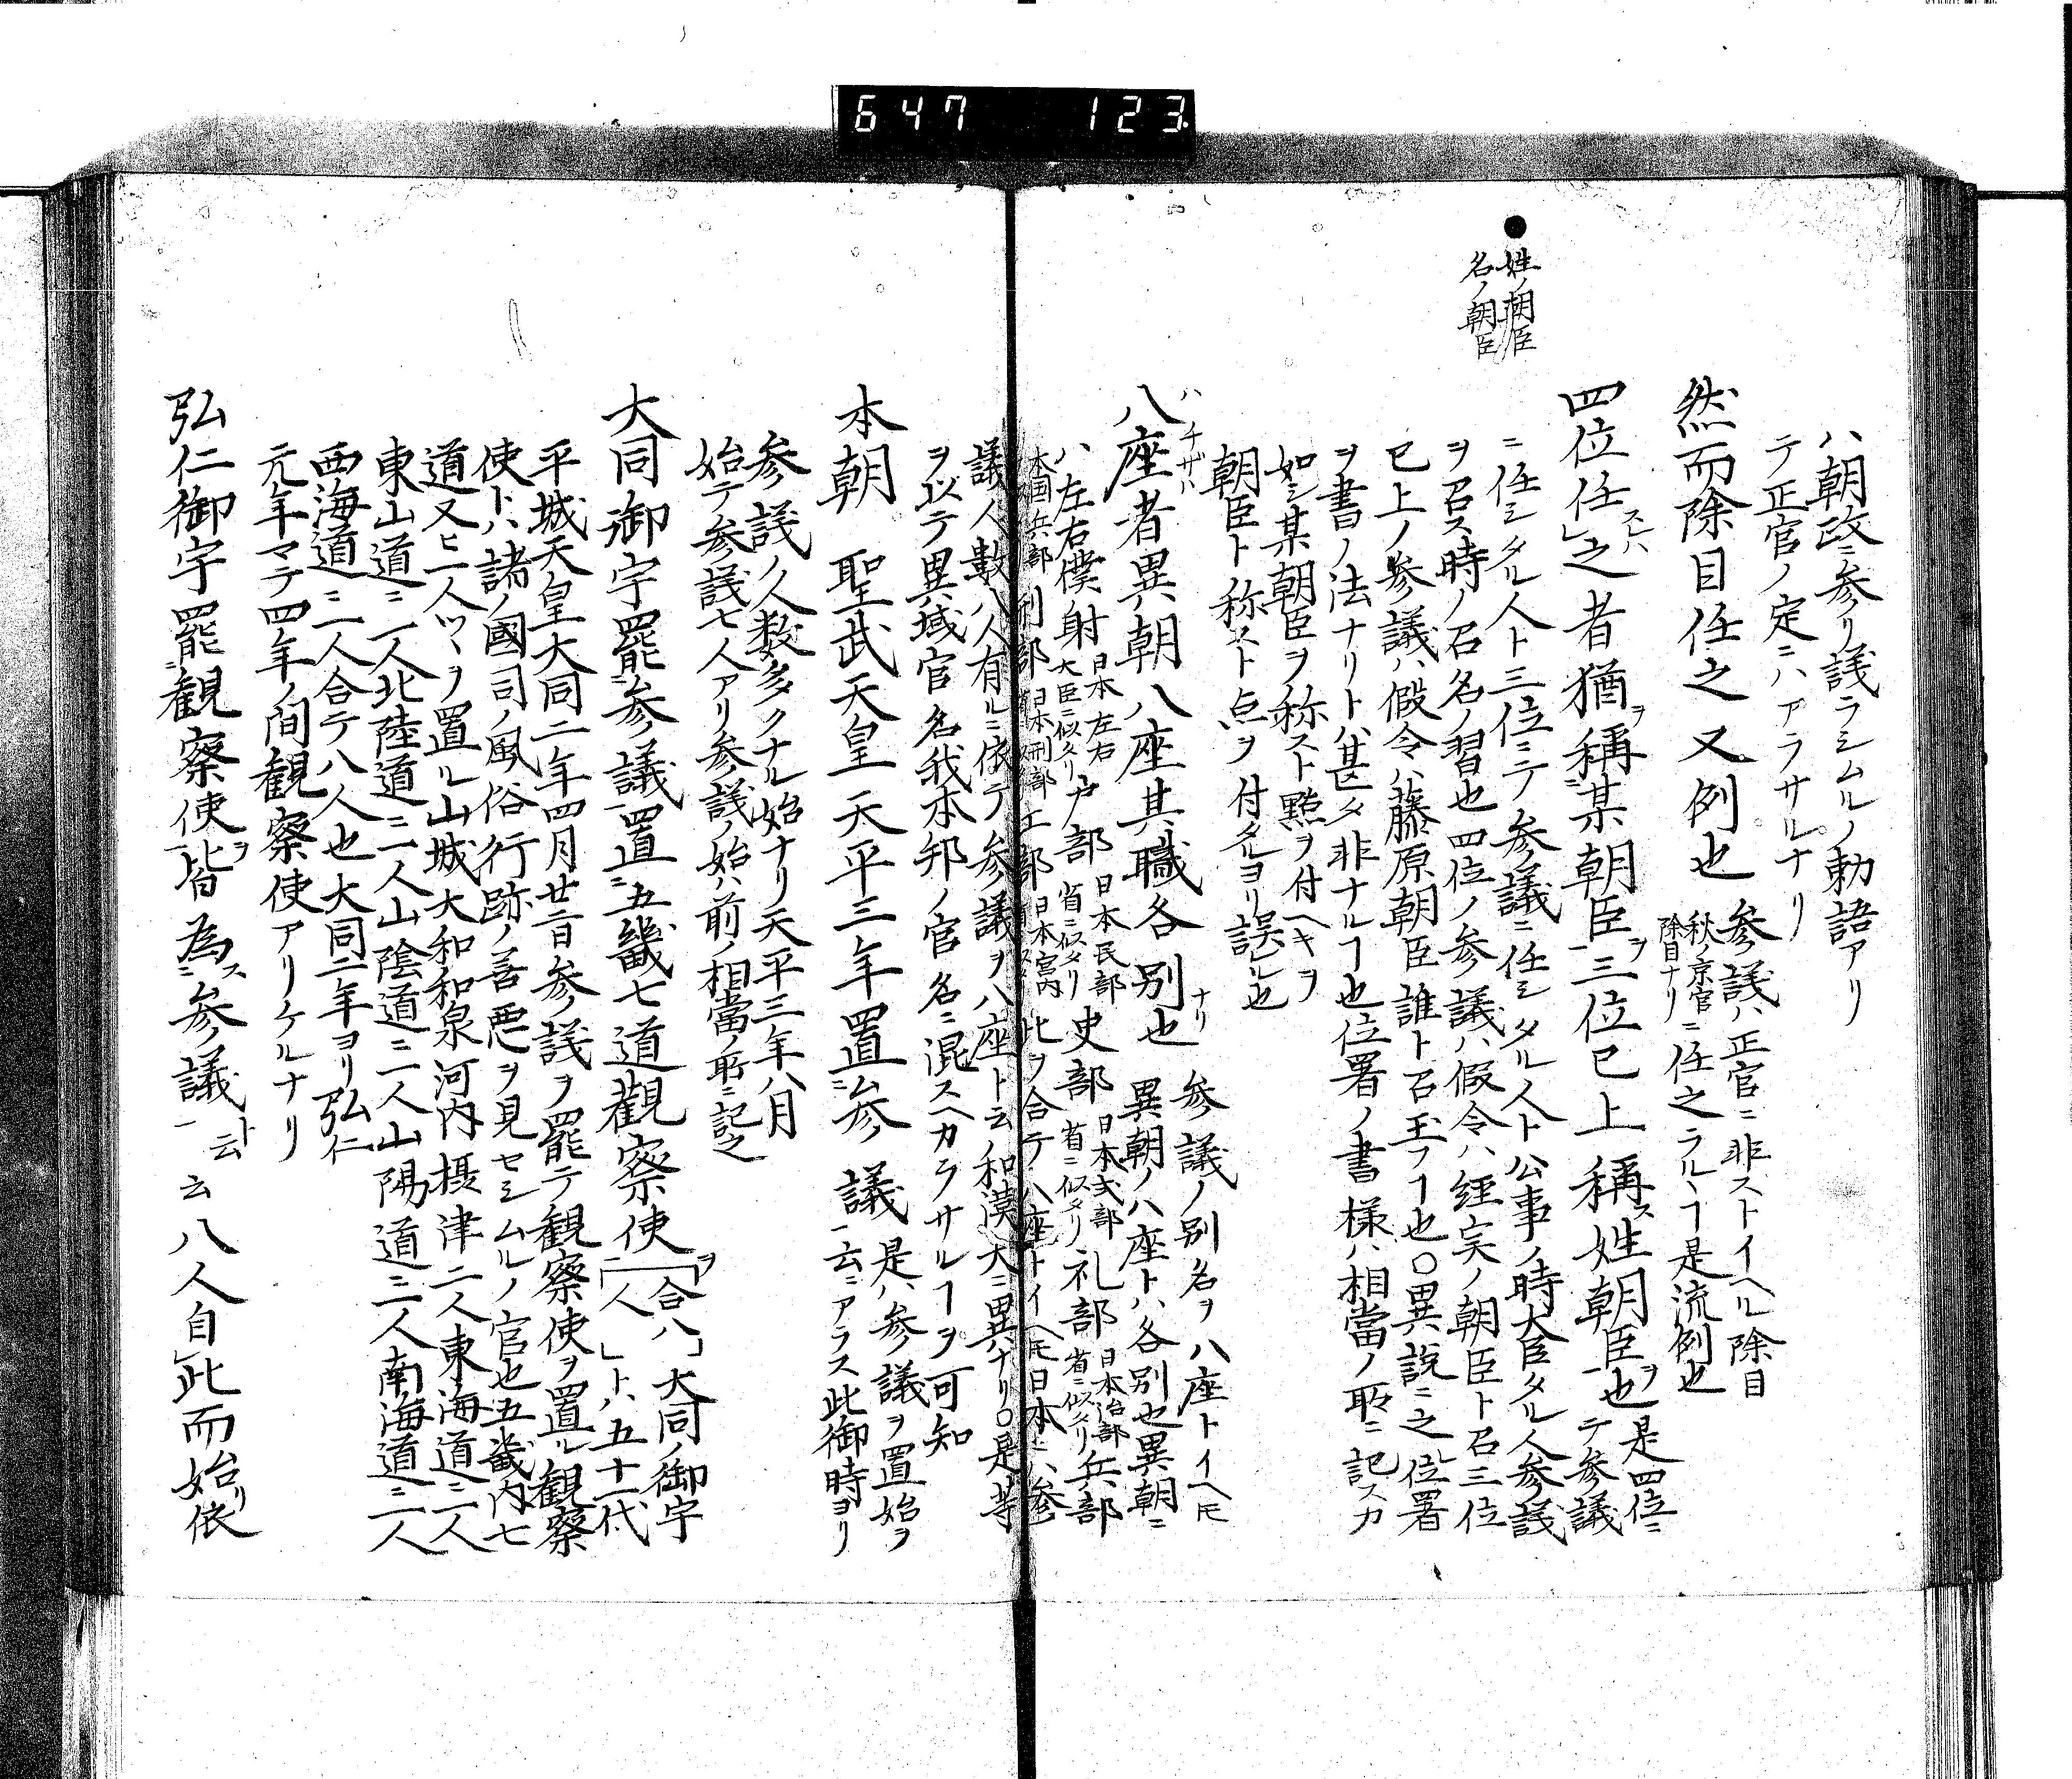 647 123
姓ノ朝臣
名ノ朝臣
ハ朝政ニ参リ議ラシムルノ勅語アリ
テ正官ノ定ニハアラサルナリ
然而除目任之又例也
参議ハ正官ニ非ストイヘル除目
秋ノ京官
除目ナリ
ニ任之ラルヽヿ是流例也
四位任之者猶稱某朝臣三位已上稱姓朝臣也
是四位ニ
テ参議
ニ任シタル人ト三位ニテ参議ニ任シタル人ト公事ノ時大臣タル人参議
ヲ召ス時ノ召名ノ習也四位ノ参議ハ假令ハ経実ノ朝臣ト召三位
已上ノ参議ハ假令ハ藤原朝臣誰ト召玉フヿ也〇異説ニ之位署
ヲ書ノ法ナリトハ甚タ非ナルヿ也位署ノ書様ハ相當ノ所ニ記スカ
如シ某朝臣ヲ称スト點ヲ付ヘキヲ
朝臣ト称スト点ヲ付タルヨリ誤ル也
ハチザハ
八座者異朝八座其職各別也
ナリ
参議ノ別名ヲ八座トイヘ𪜈
異朝ノ八座トハ各別也異朝ニ
ハ左右僕射
日本左右
大臣ニ似タリ
戸部
日本民部
省ニ似タリ
吏部
日本式部
省ニ似タリ
礼部
日本治部
省ニ似タリ
兵部
本国兵部
刑部
日本刑部
工部
日本宮内
此ヲ合テノ八座トイヘ𪜈日本ニハ参
議ノ人數八人有ルニ依テ参議ヲ八座ト云ノ和漢大ニ異ナリ〇是等
ヲ以テ異域官名我本邦ノ官名ニ混スヘカラサルヿヲ可知
本朝 聖武天皇天平三年置参議
是ハ参議ヲ置始ヲ
云ニアラス此御時ヨリ
参議ノ人数多クナル始ナリ天平三年八月
始テ参議七人アリ参議ノ始ハ前ノ相當ノ所ニ記之
大同御宇罷参議置五畿七道觀察使
合八
人
大同ノ御宇
トハ五十一代
平城天皇大同二年四月廿二日参議ヲ罷テ観察使ヲ置ル観察
使トハ諸ノ國司ノ風俗行跡ノ善悪ヲ見セシムルノ官也五畿内七
道又ヒ二人ツヽヲ置ル山城大和和泉河内摂津二人東海道ニ二人
東山道ニ一人北陸道ニ二人山陰道ニ二人山陽道ニ二人南海道ニ二人
西海道ニ一人合テ八人也大同二年ヨリ弘仁
元年マテ四年ノ間観察使アリケルナリ
弘仁御宇罷観察使皆為参議云云八人自此而始依